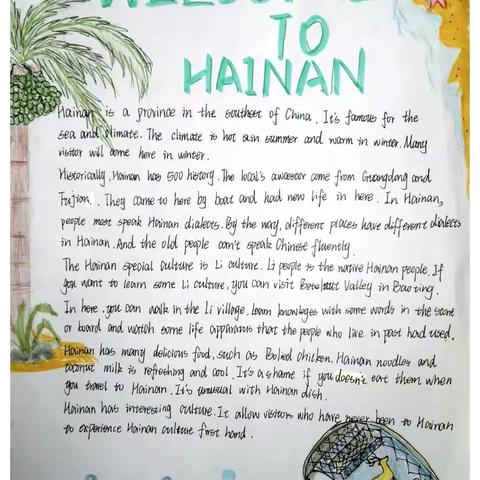 WELCOME
TO
HAINAN
Hainan is a province in the southest of China. It's famous for the
sea and climate. The climate is hot sun summer and warm in winter. Many
visitor will come here in winter.
Historically, Hainan has 500 history. The local's awcestor come from Guangdong and
Fujion. They came to here by boat and had new life in here. In Hainan,
people most speak Hainan dialects. By the way, different places have different dialects
in Hainan. And the old people can't speak Chinese fluently.
The Hainan special culture is Li culture. Li people is the native Hainan people. If
you want to learn some Li culture, you can visit Betelnut Valley in Baoting.
In here, you can walk in the Li village, learn knowleges with some words in the stone
or board and watch some life apparatus that the people who live in past had used.
Hainan has many delicious food, such as Bolied chicken. Hainan noodles and
coconut milk is refreshing and cool. It's a shame if you doesn't eat them when
you travel to Hainan. It's unusual with Hainan dish.
Hainan has interesting culture. It allow visitors who have never been to Hainan
to experience Hainan culture first hand.